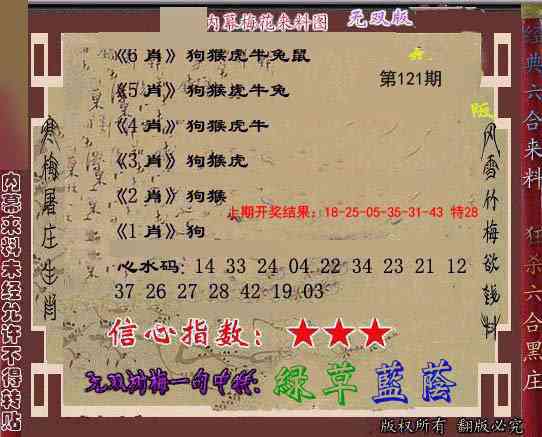 内幕梅花来料图 无双版
《6 肖》狗猴虎牛兔鼠
第121期
《5 肖》狗猴虎牛兔
《4 肖》狗猴虎牛
《3 肖》狗猴虎
《2 肖》狗猴
上期开奖结果：18-25-05-35-31-43 特28
《1 肖》狗
心水码：14 33 24 04 22 34 23 21 12
37 26 27 28 42 19 03
信心指数：★★★
无双剑梅一句中特：绿草蓝荫
版权所有 翻版必究
寒梅屠庄生肖
风雪竹梅欲钱料
内幕来料未经允许不得转贴
经典六合来料 狂杀六合黑庄